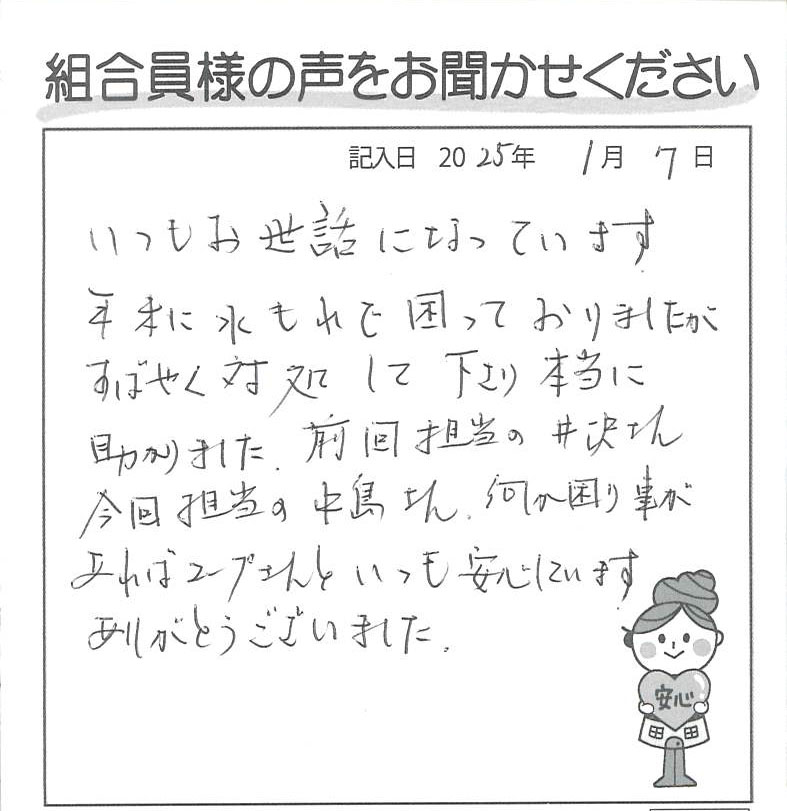 組合員様の声をお聞かせください
記入日 2025年 1月 7日
いつもお世話になっています
年末に水もれで困っておりましたが
すばやく対処して下さり本当に
助かりました。前回担当の井沢さん
今回担当の中島さん、何か困り事が
あればコープさんといつも安心しています
ありがとうございました。
安心